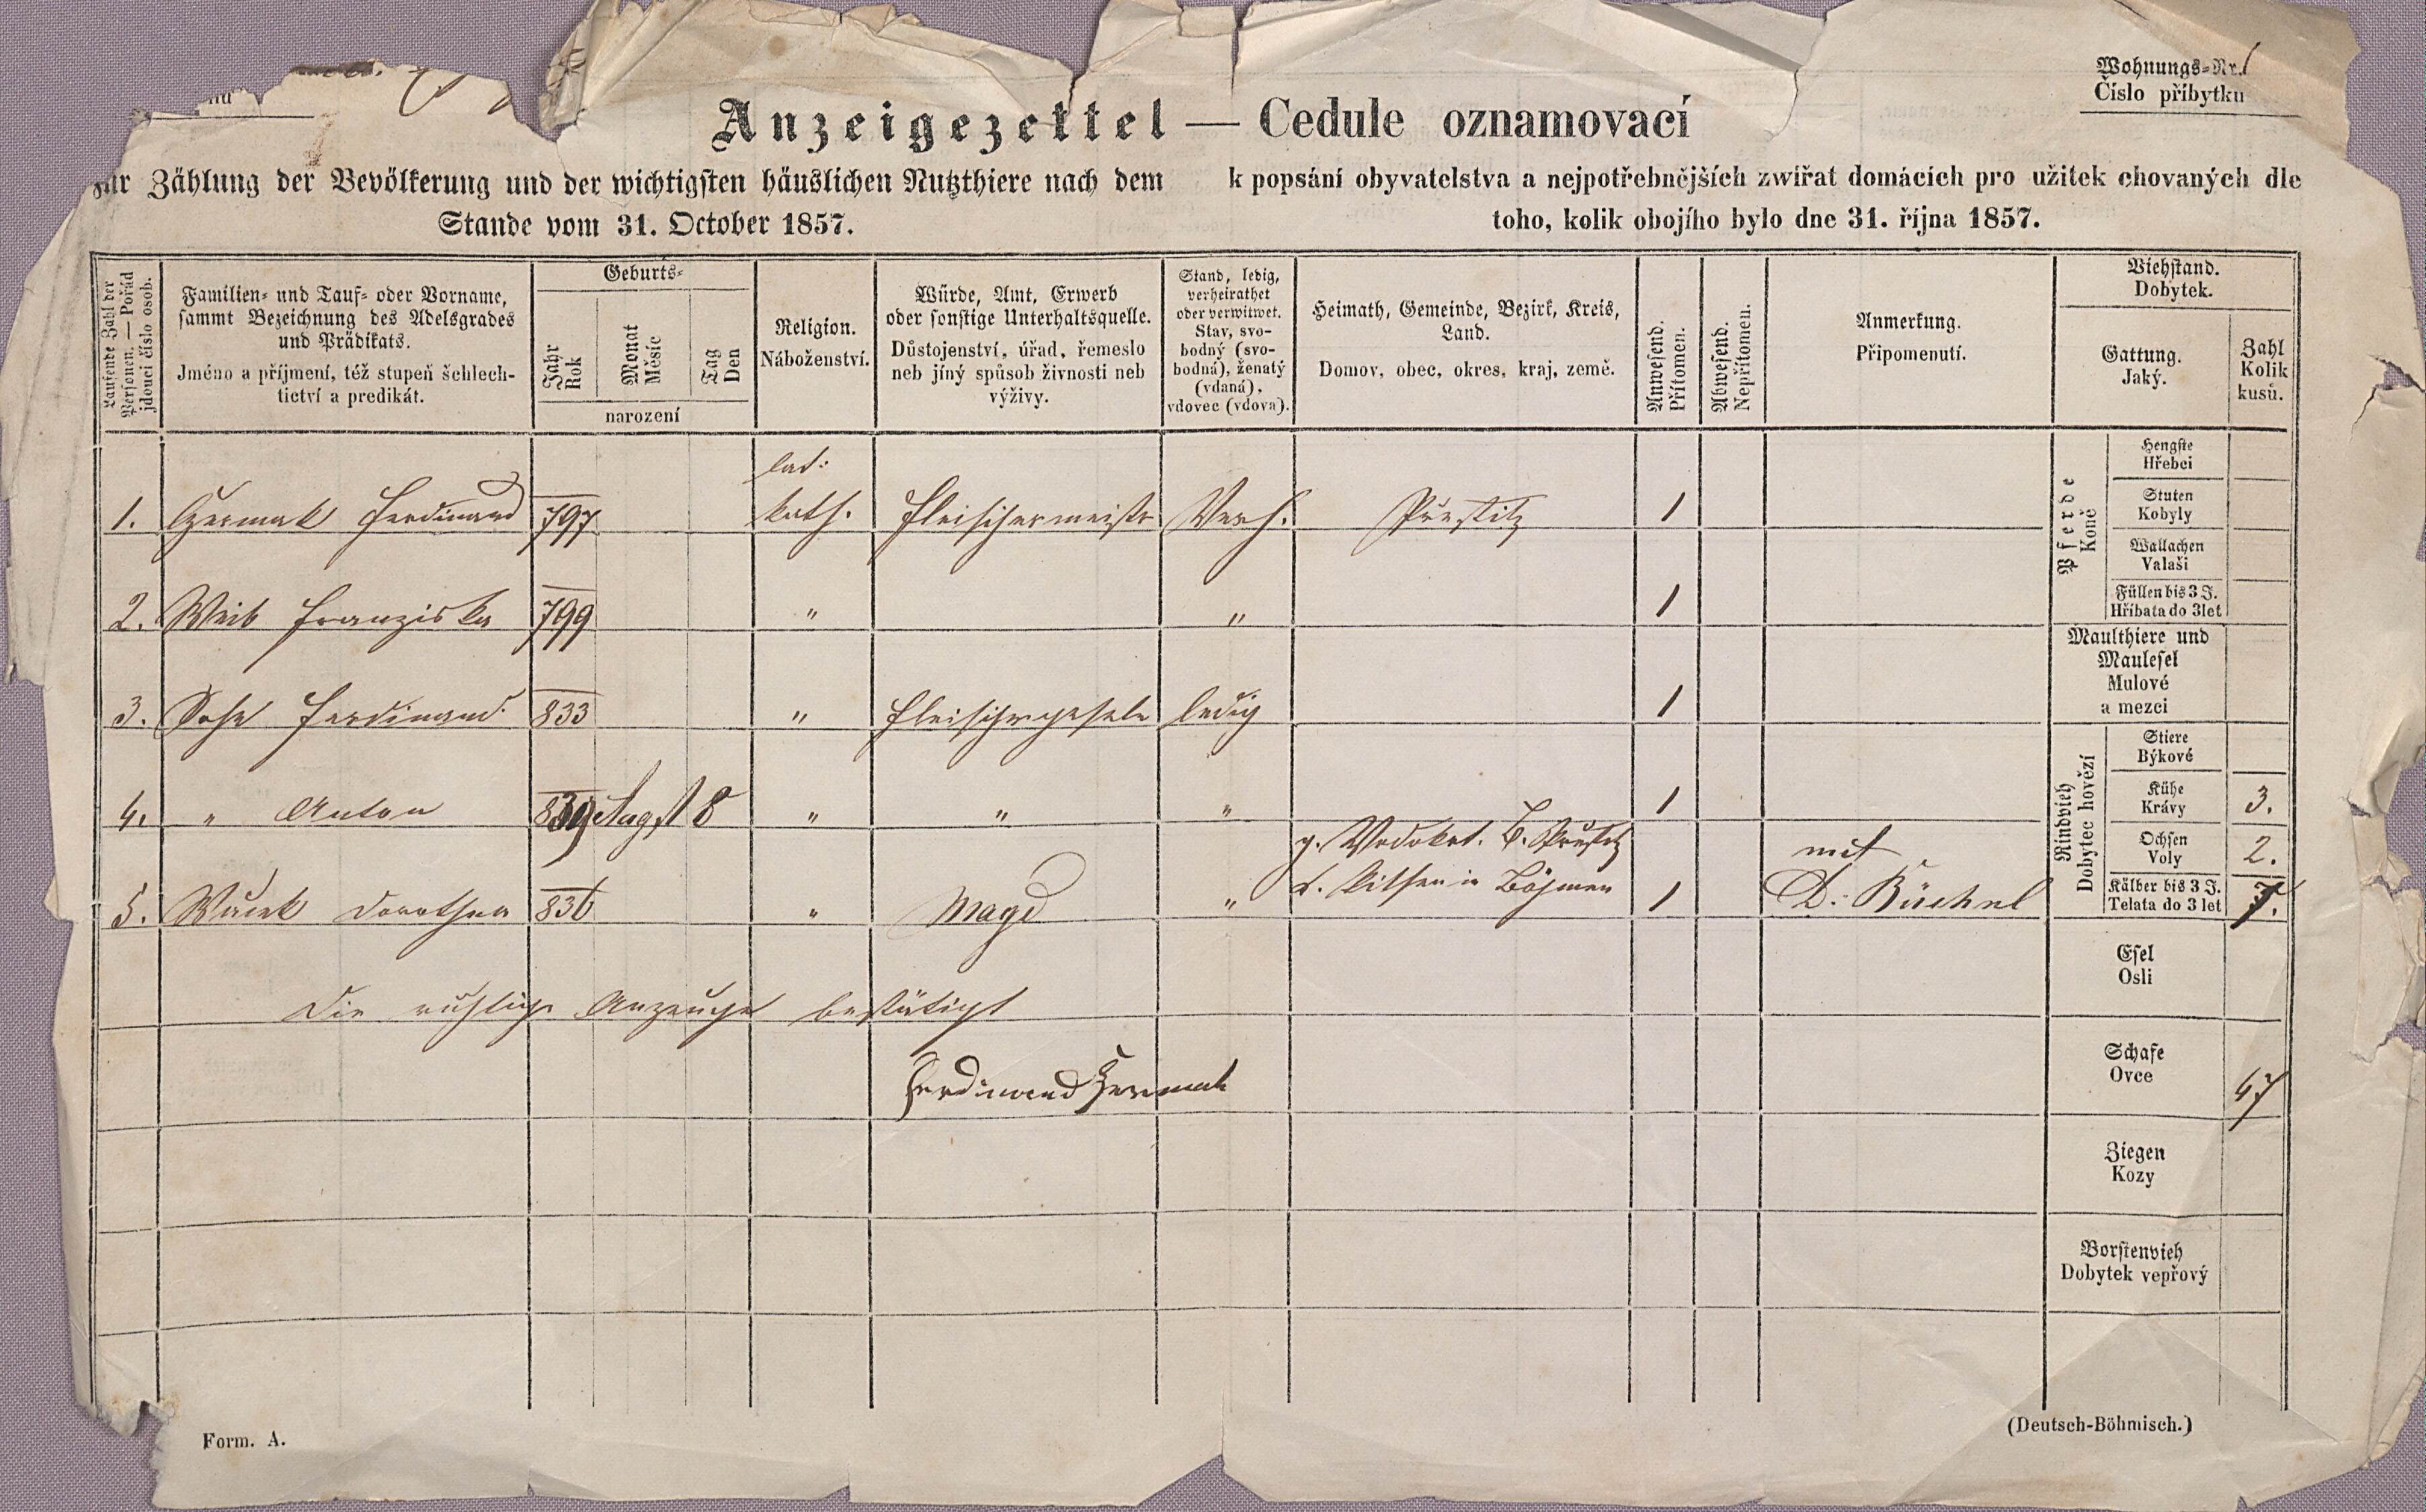 Wohnungs-Nr. 1
Číslo příbytku
Anzeigezettel — Cedule oznamovací
zur Zählung der Bevölkerung und der wichtigsten häuslichen Nutzthiere nach dem
Stande vom 31. October 1857.
k popsání obyvatelstva a nejpotřebnějších zwířat domácich pro užitek chovaných dle
toho, kolik obojího bylo dne 31. října 1857.
Laufende Zahl der
Personen. — Pořád
jdoucí číslo osob.
Familien- und Tauf- oder Vorname,
sammt Bezeichnung des Adelsgrades
und Prädikats.
Jméno a příjmení, též stupeň šchlech-
tictví a predikát.
Geburts-
Jahr
Rok
Monat
Měsíc
Tag
Den
narození
Religion.
Náboženství.
Würde, Amt, Erwerb
oder sonstige Unterhaltsquelle.
Důstojenství, úřad, řemeslo
neb jíný spůsob živnosti neb
výživy.
Stand, ledig,
verheirathet
oder verwitwet.
Stav, svo-
bodný (svo-
bodná), ženatý
(vdaná),
vdovec (vdova).
Heimath, Gemeinde, Bezirk, Kreis,
Land.
Domov, obec, okres, kraj, země.
Anwesend.
Přítomen.
Abwesend.
Nepřítomen.
Anmerkung.
Připomenutí.
Viehstand.
Dobytek.
Gattung.
Jaký.
Zahl
Kolik
kusů.
1. Czermak Ferdinand 797 kath. Fleischermeister Verh. Přestitz 1
lat:
2. Weib Franziska 799 " " 1
3. Sohn Ferdinand 833 " Fleischergeselle ledig 1
4. " Anton 839 August 8 " " " 1
g. Wodokrt. B. Přestitz
5. Dorothea 836 " Magd " K. Pilsen in Böhmen 1
mit
D. Büchel
Die richtige Anzeige bestätigt
Ferdinand Czermak
Pferde
Koně
Hengste
Hřebci
Stuten
Kobyly
Wallachen
Valaši
Füllen bis 3 J.
Hříbata do 3 let
Maulthiere und
Maulesel
Mulové
a mezci
Rindvieh
Dobytec hovězí
Stiere
Býkové
Kühe
Krávy 3.
Ochsen
Voly 2.
Kälber bis 3 J.
Telata do 3 let 7.
Esel
Osli
Schafe
Ovce 47
Ziegen
Kozy
Borstenvieh
Dobytek vepřový
Form. A.
(Deutsch-Böhmisch.)